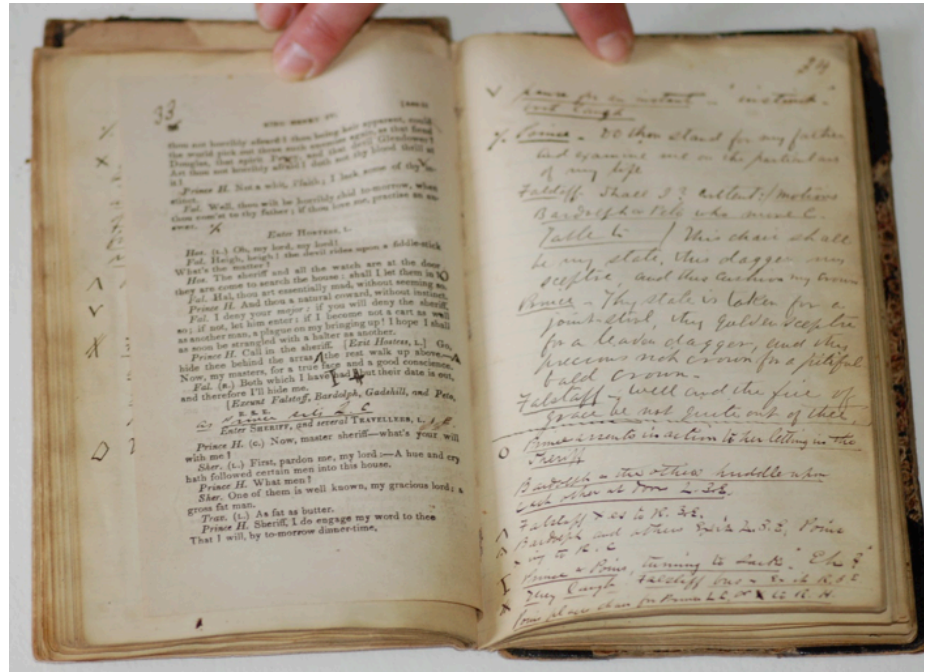 33
KING HENRY IV.
thou not horribly afraid? thou being heir apparent, could
the world pick out three such enemies again, as that fiend
Douglas, that spirit Percy, and that devil Glendower?
Art thou not horribly afraid? doth not thy blood thrill at
it?
Prince H. Not a whit, i'faith; I lack some of thy in-
stinct.
Fal. Well, thou wilt be horribly chid to-morrow, when
thou com'st to thy father; if thou love me, practise an an-
swer.
Enter HOSTESS, L.
Hos. (L.) Oh, my lord, my lord!
Fal. Heigh, heigh! the devil rides upon a fiddle-stick
What's the matter?
Hos. The sheriff and all the watch are at the door
they are come to search the house; shall I let them in?
Fal. Hal, thou art essentially mad, without seeming so.
Prince H. And thou a natural coward, without instinct.
Fal. I deny your major; if you will deny the sheriff,
so; if not, let him enter; if I become not a cart as well
as another man, a plague on my bringing up! I hope I shall
as soon be strangled with a halter as another.
Prince H. Call in the sheriff. [Exit Hostess, L.] Go,
hide thee behind the arras, the rest walk up above.
Now, my masters, for a true face and a good conscience.
Fal. (R.) Both which I have had; but their date is out,
and therefore I'll hide me.
[Exeunt Falstaff, Bardolph, Gadshill, and Peto,
R. S. E.
Enter SHERIFF, and several TRAVELLERS, L.
Prince H. (C.) Now, master sheriff—what's your will
with me?
Sher. (L.) First, pardon me, my lord:—A hue and cry
hath followed certain men into this house.
Prince H. What men?
Sher. One of them is well known, my gracious lord; a
gross fat man.
Trav. (L.) As fat as butter.
Prince H. Sheriff, I do engage my word to thee
That I will, by to-morrow dinner-time,
34
pause for an instant - "instinct"
Prince - Do thou stand for my father
and examine me on the particulars
of my life
Falstaff. Shall I? content:/ motions
Bardolph & Peto who move C.
Table to / This chair shall
be my state, this dagger my
sceptre and this cushion my crown
Prince - Thy state is taken for a
joint-stool, thy golden sceptre
for a leaden dagger, and thy
precious rich crown for a pitiful
bald crown -
Falstaff - Well and the fire of
grace be not quite out of thee
Prince assents in action to her letting in the
Sheriff
Bardolph & the others huddle upon
each other at door L.3E.
Falstaff x es to R.3E.
Bardolph and others Exit L.3.E, Poins
-ing to R.C
Prince & Poins, turning to Jack. "Eh?"
They laugh Falstaff
Poins places chair for Prince